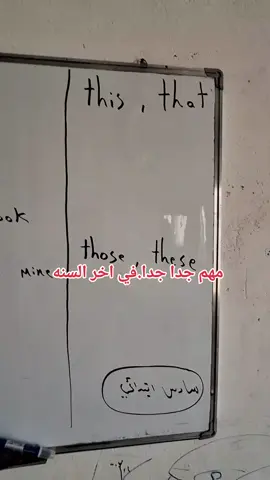 this , that
ook
those , these
مهم جدا جدا.في اخر السنه
Mine
سادس ابتدائي